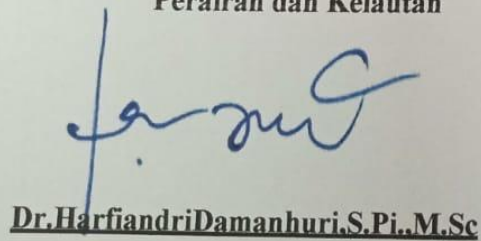 Perairan dan Kelautan
Dr.HarfiandriDamanhuri.S.Pi.,M.Sc